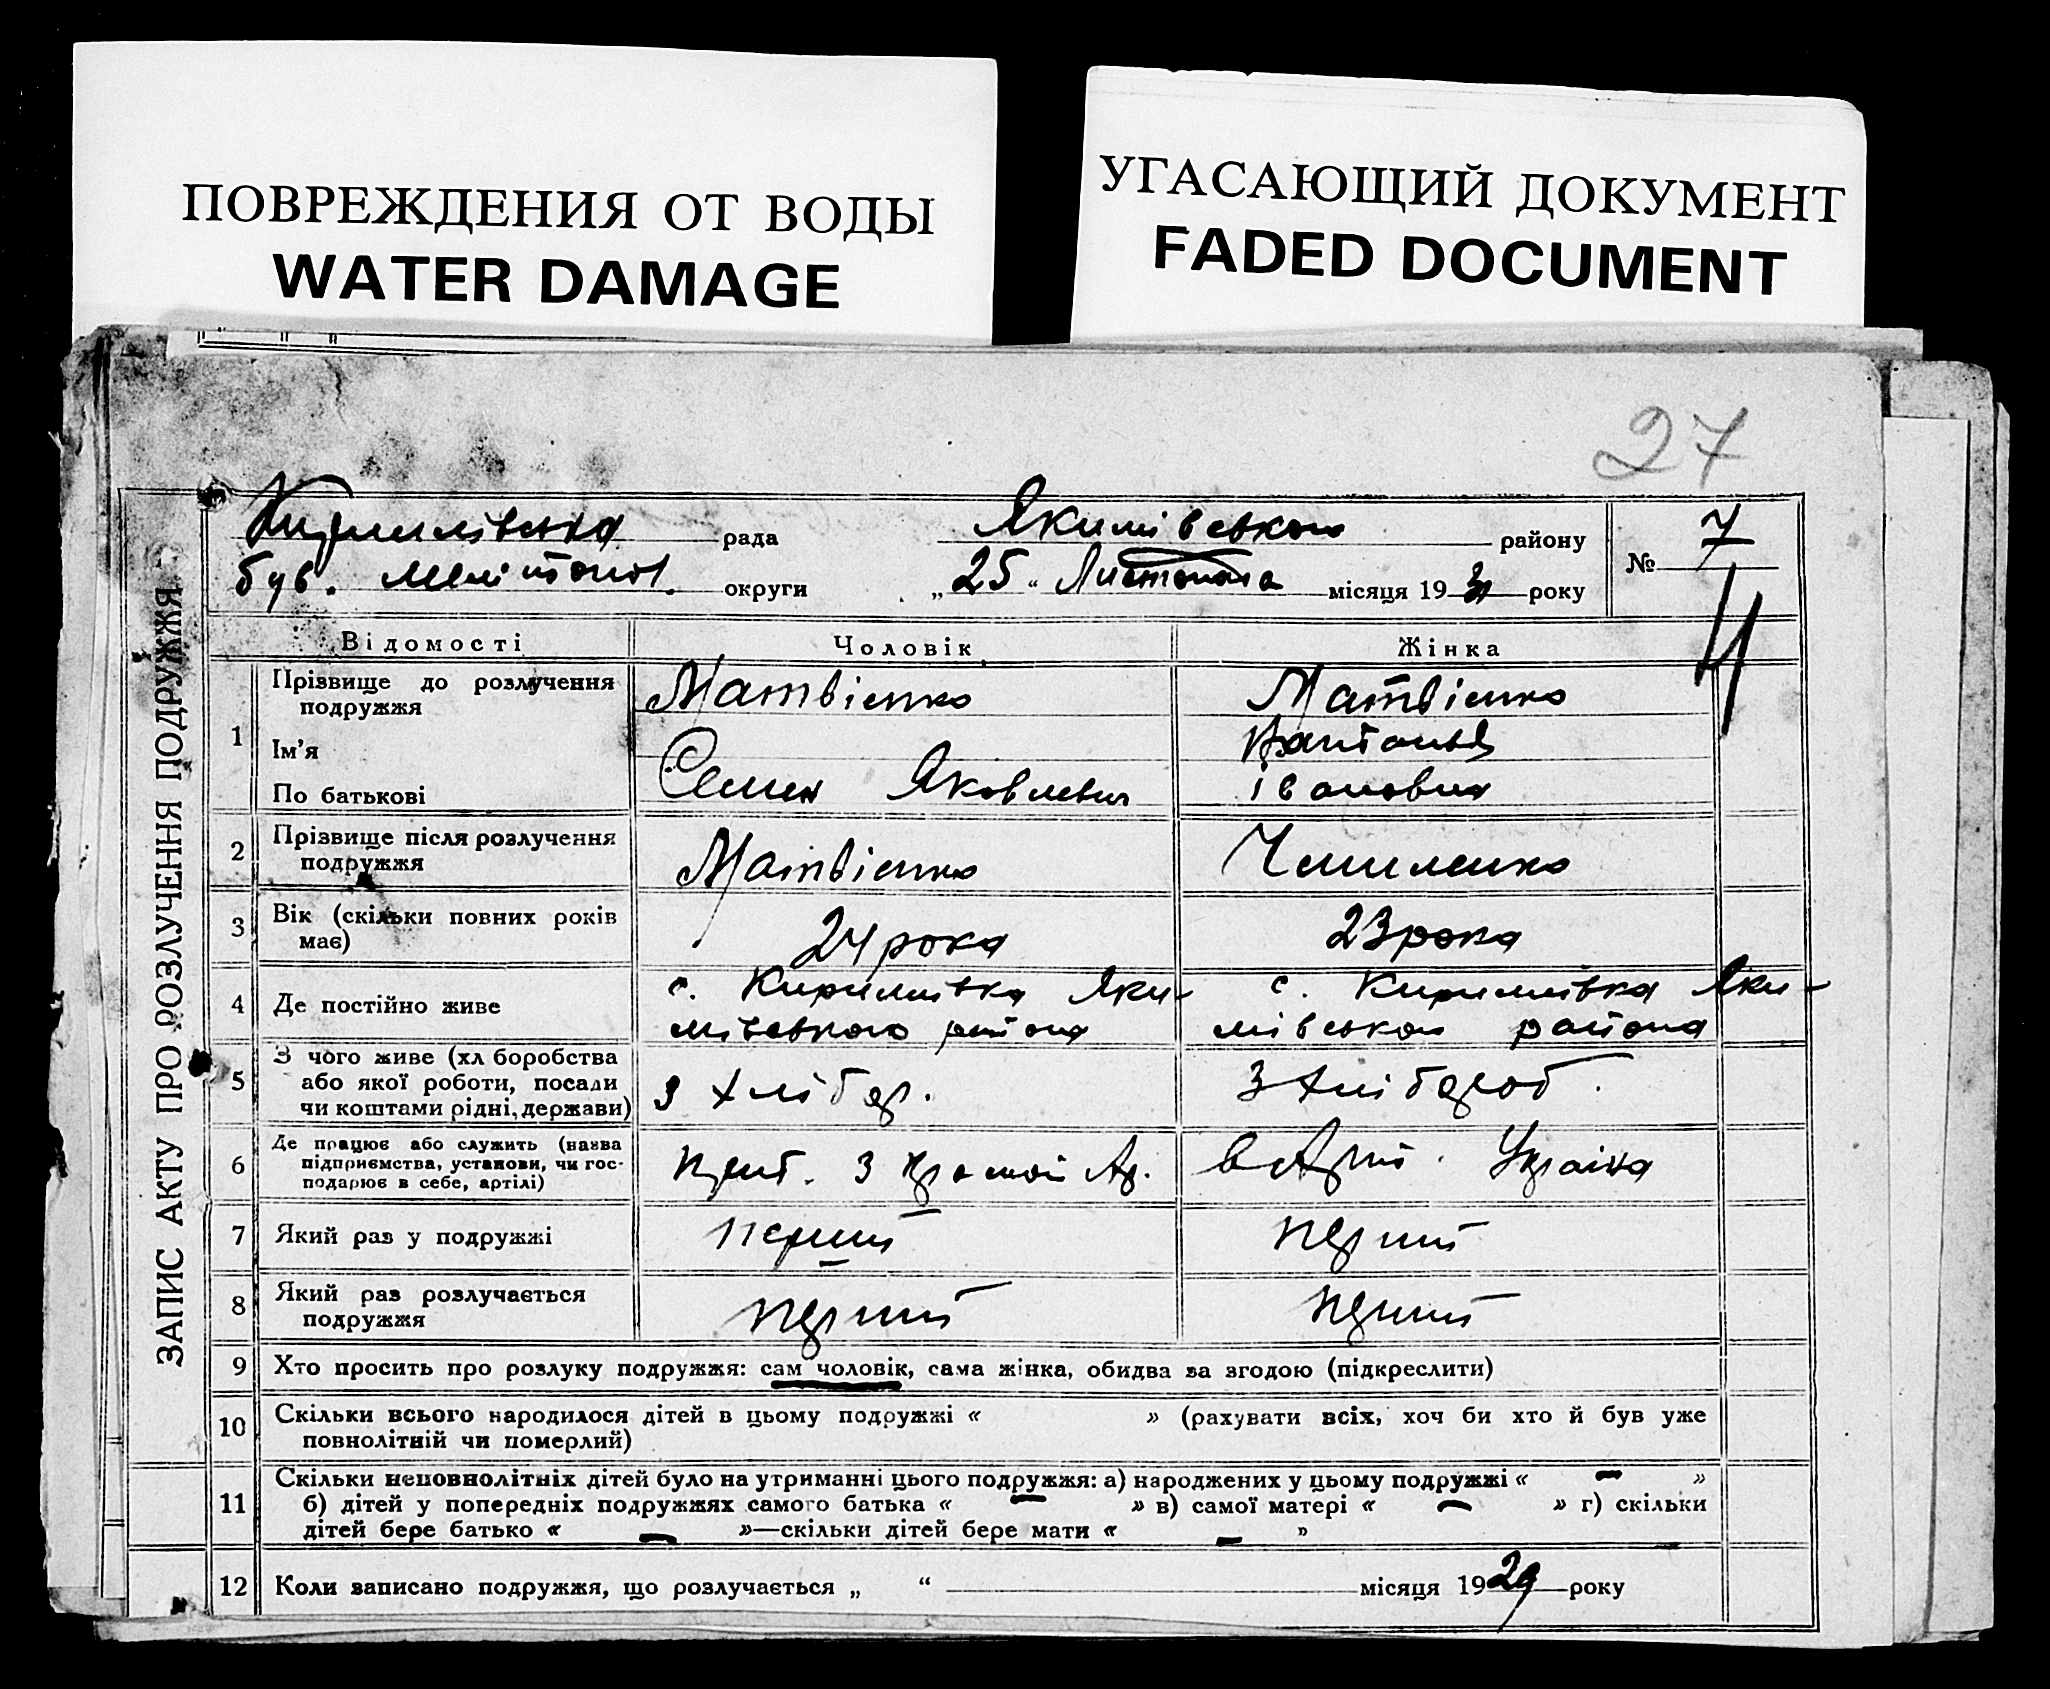 ПОВРЕЖДЕНИЯ ОТ ВОДЫ
WATER DAMAGE
УГАСАЮЩИЙ ДОКУМЕНТ
FADED DOCUMENT
27
ЗАПИС АКТУ ПРО РОЗЛУЧЕННЯ ПОДРУЖЖЯ
Кирилівська рада Якимівського району № 7
був. Меліто округи „25“ Листопада місяця 1931 року
Відомості Чоловік Жінка
1 Прізвище до розлучення подружжя Матвієнко Матвієнко
Ім'я Семен Антонья
По батькові Яковлевич Івановна
2 Прізвище після розлучення подружжя Матвієнко
3 Вік (скільки повних років має) 24 рока 23 рока
4 Де постійно живе с. Кирилівка Яки- с. Кирилівка Яки-
мівського района мівського района
5 З чого живе (хліборобства
або якої роботи, посади
чи коштами рідні, держави) з хлібор. З хлібороб.
6 Де працює або служить (назва
підприємства, установи, чи гос-
подарює в себе, артілі) З Ар. в Арт. Україна
7 Який раз у подружжі перший перший
8 Який раз розлучається подружжя перший перший
9 Хто просить про розлуку подружжя: сам чоловік, сама жінка, обидва за згодою (підкреслити)
10 Скільки всього народилося дітей в цьому подружжі « » (рахувати всіх, хоч би хто й був уже
повнолітній чи померлий)
11 Скільки неповнолітніх дітей було на утриманні цього подружжя: а) народжених у цьому подружжі « — »
б) дітей у попередніх подружжях самого батька « — » в) самої матері « — » г) скільки
дітей бере батько « — »—скільки дітей бере мати « — »
12 Коли записано подружжя, що розлучається „ “ місяця 1929 року